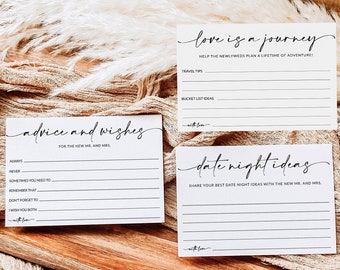 love is a journey
HELP THE NEWLYWEDS PLAN A LIFETIME OF ADVENTURE!
TRAVEL TIPS
BUCKET LIST IDEAS
with love
advice and wishes
FOR THE NEW MR. AND MRS.
ALWAYS
NEVER
SOMETIMES YOU NEED TO
REMEMBER THAT
DON'T FORGET TO
I WISH YOU BOTH
with love
date night ideas
SHARE YOUR BEST DATE NIGHT IDEAS WITH THE NEW MR. AND MRS.
with love